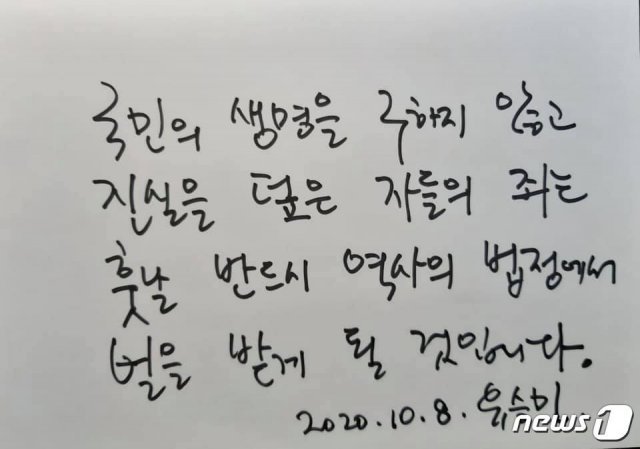 국민의 생명을 구하지 않고
진실을 덮은 자들의 죄는
훗날 반드시 역사의 법정에서
벌을 받게 될 것입니다.
2020.10.8. 유승민
news1